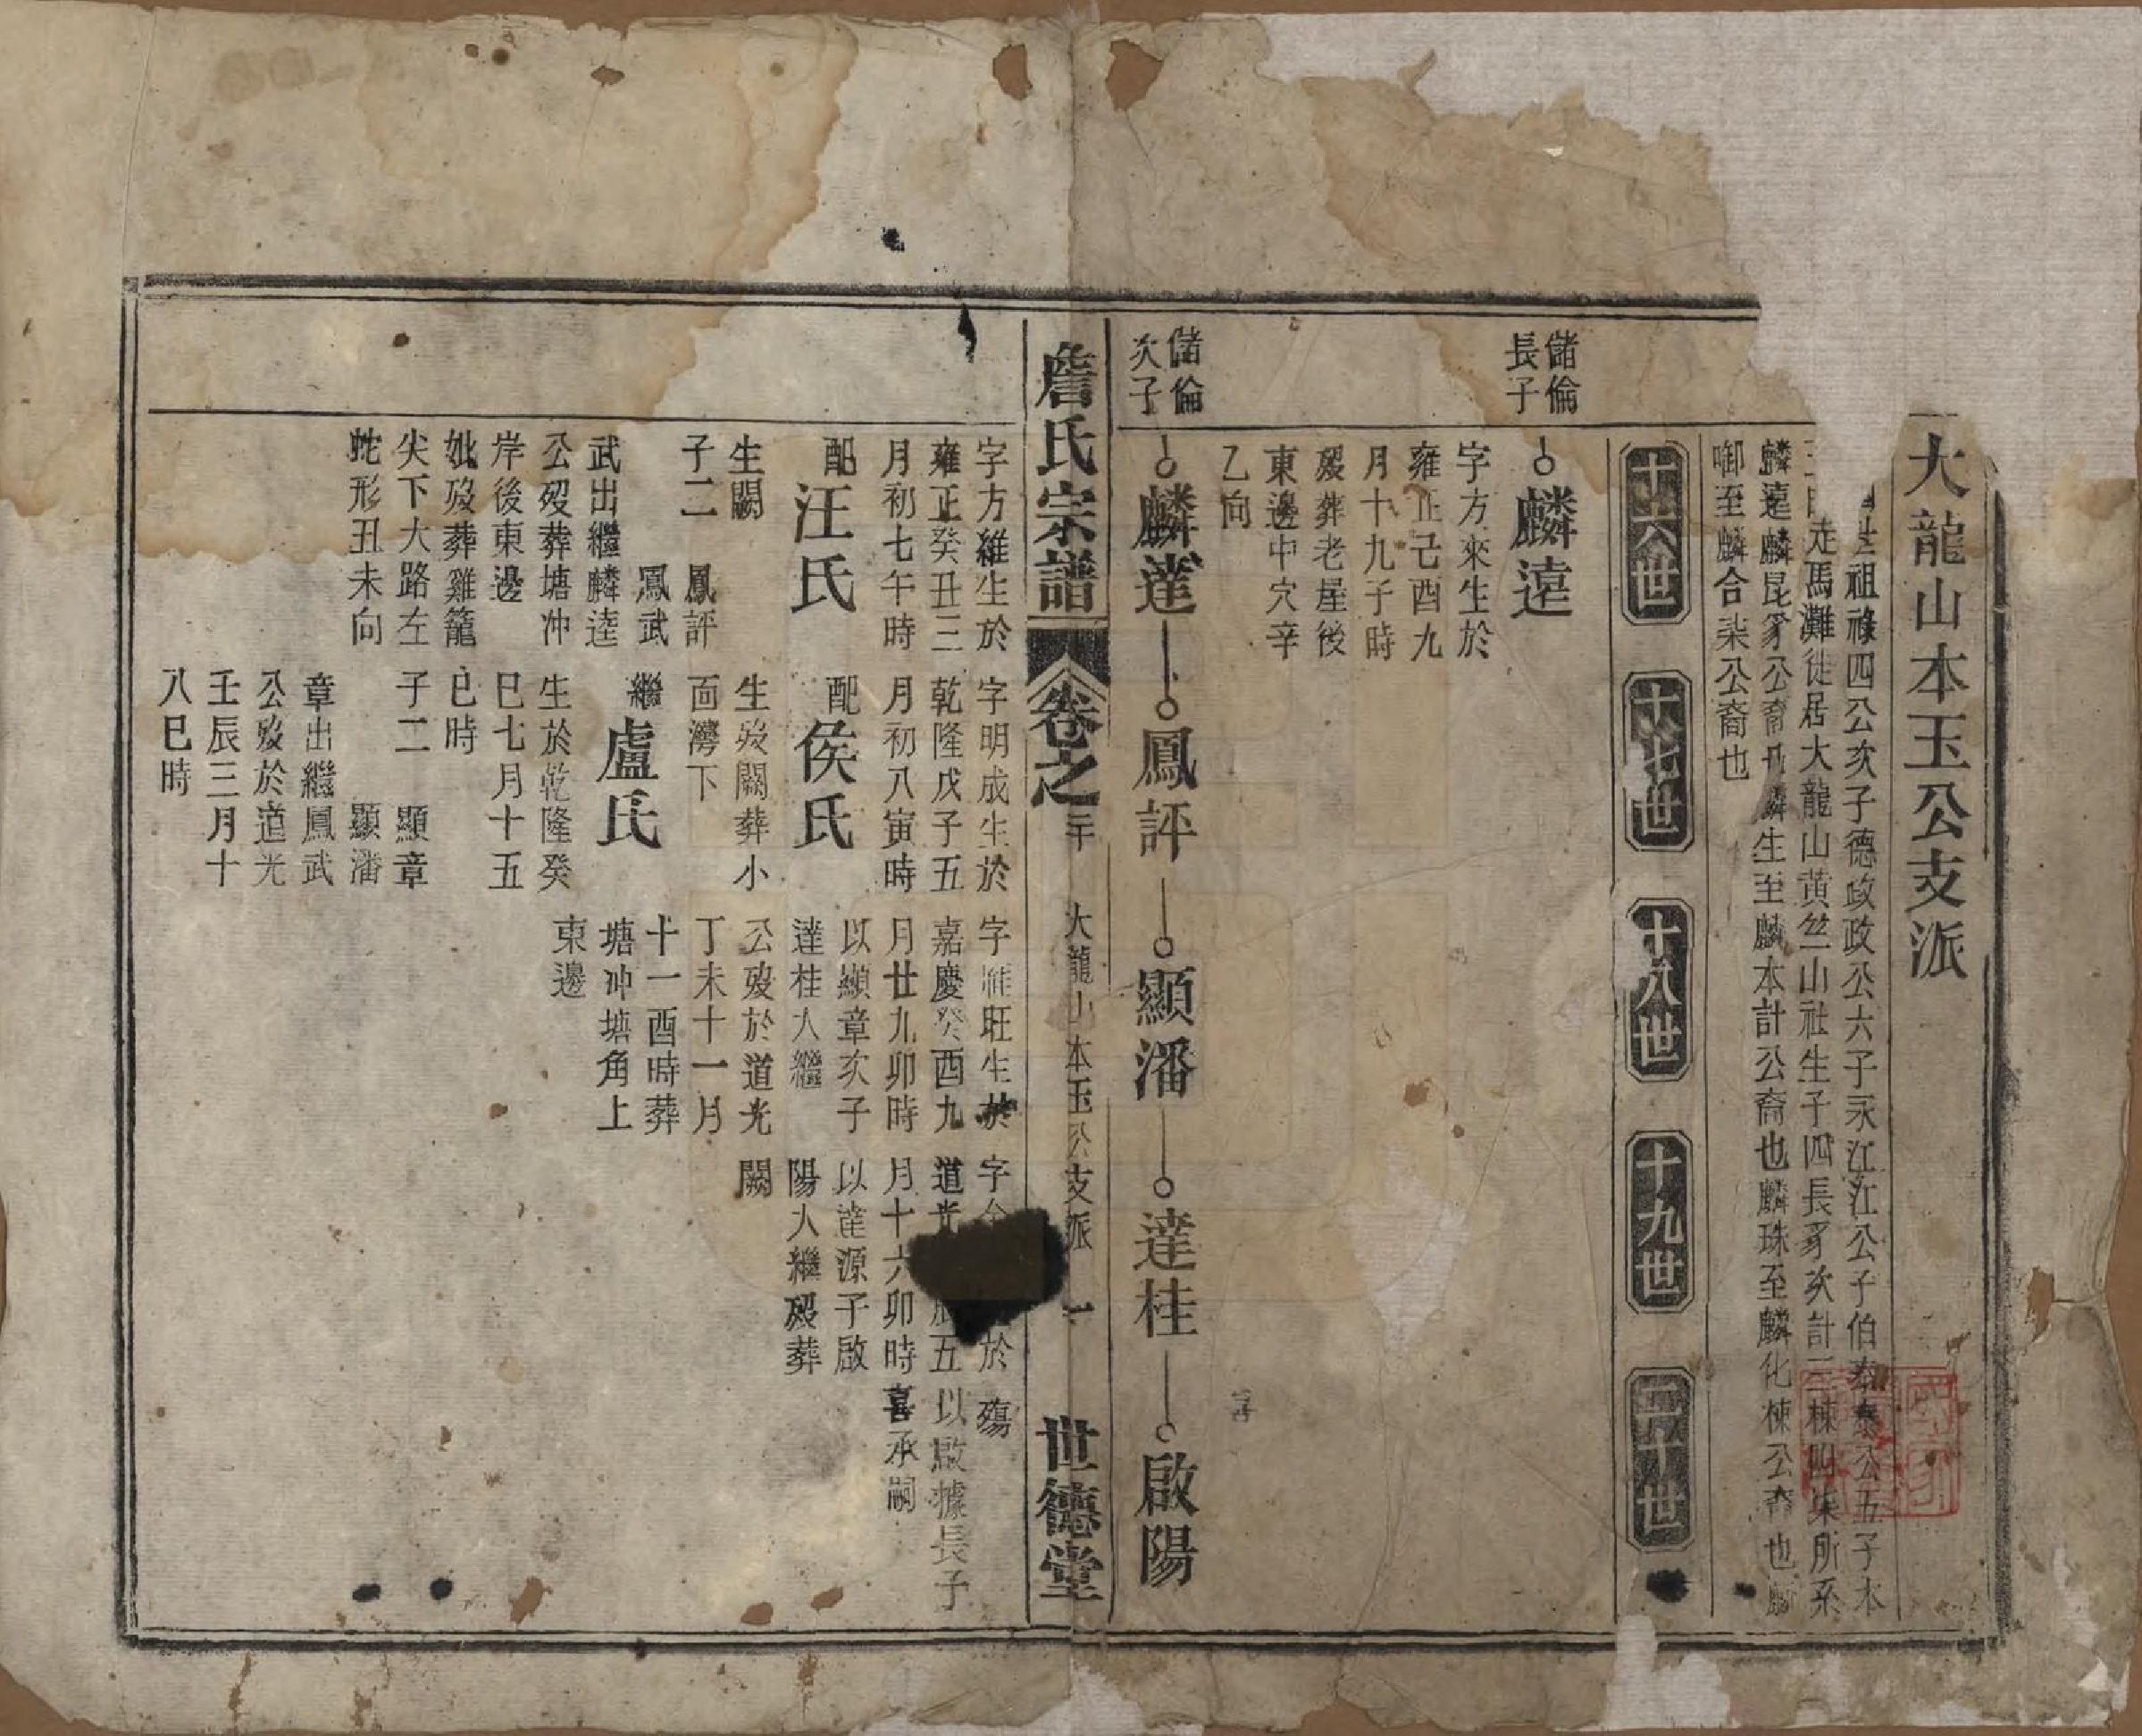 大龍山本玉公支派
世祖祿四公次子德政政公六子永江江公子伯泰泰公五子本
走馬灘徙居大龍山黃丝山社生子四長豸次計三棟四柒所系
麟遠麟昆豸公裔也麟生至麟本計公裔也麟珠至麟化棟公裔也麟
啣至麟合柒公裔也
十六世
十七世
十八世
十九世
二十世
儲倫
長子
麟遠
字方來生於
雍正己酉九
月十九子時
殁葬老屋後
東邊中穴辛
乙向
儲倫
次子
麟達
鳳評
顯潘
達桂
啟陽
詹氏宗譜
卷之二十
大龍山本玉公支派
一
世德堂
字方維生於
雍正癸丑三
月初七午時
配汪氏
生闕
子二 鳳評
鳳武
武出繼麟逵
公殁葬塘冲
岸後東邊
妣殁葬雞籠
尖下大路左
蛇形丑未向
字明成生於
乾隆戊子五
月初八寅時
配侯氏
生殁闕葬小
面灣下
繼盧氏
生於乾隆癸
巳七月十五
巳時
子二 顯章
顯潘
章出繼鳳武
公殁於道光
壬辰三月十
八巳時
字維旺生於
嘉慶癸酉九
月廿九卯時
以顯章次子
達桂入繼
公殁於道光
丁未十一月
十一酉時葬
塘冲塘角上
東邊
字 於
道光 五
月十六卯時
以達源子啟
陽入繼殁葬
闕
殤
以啟據長子
喜承嗣